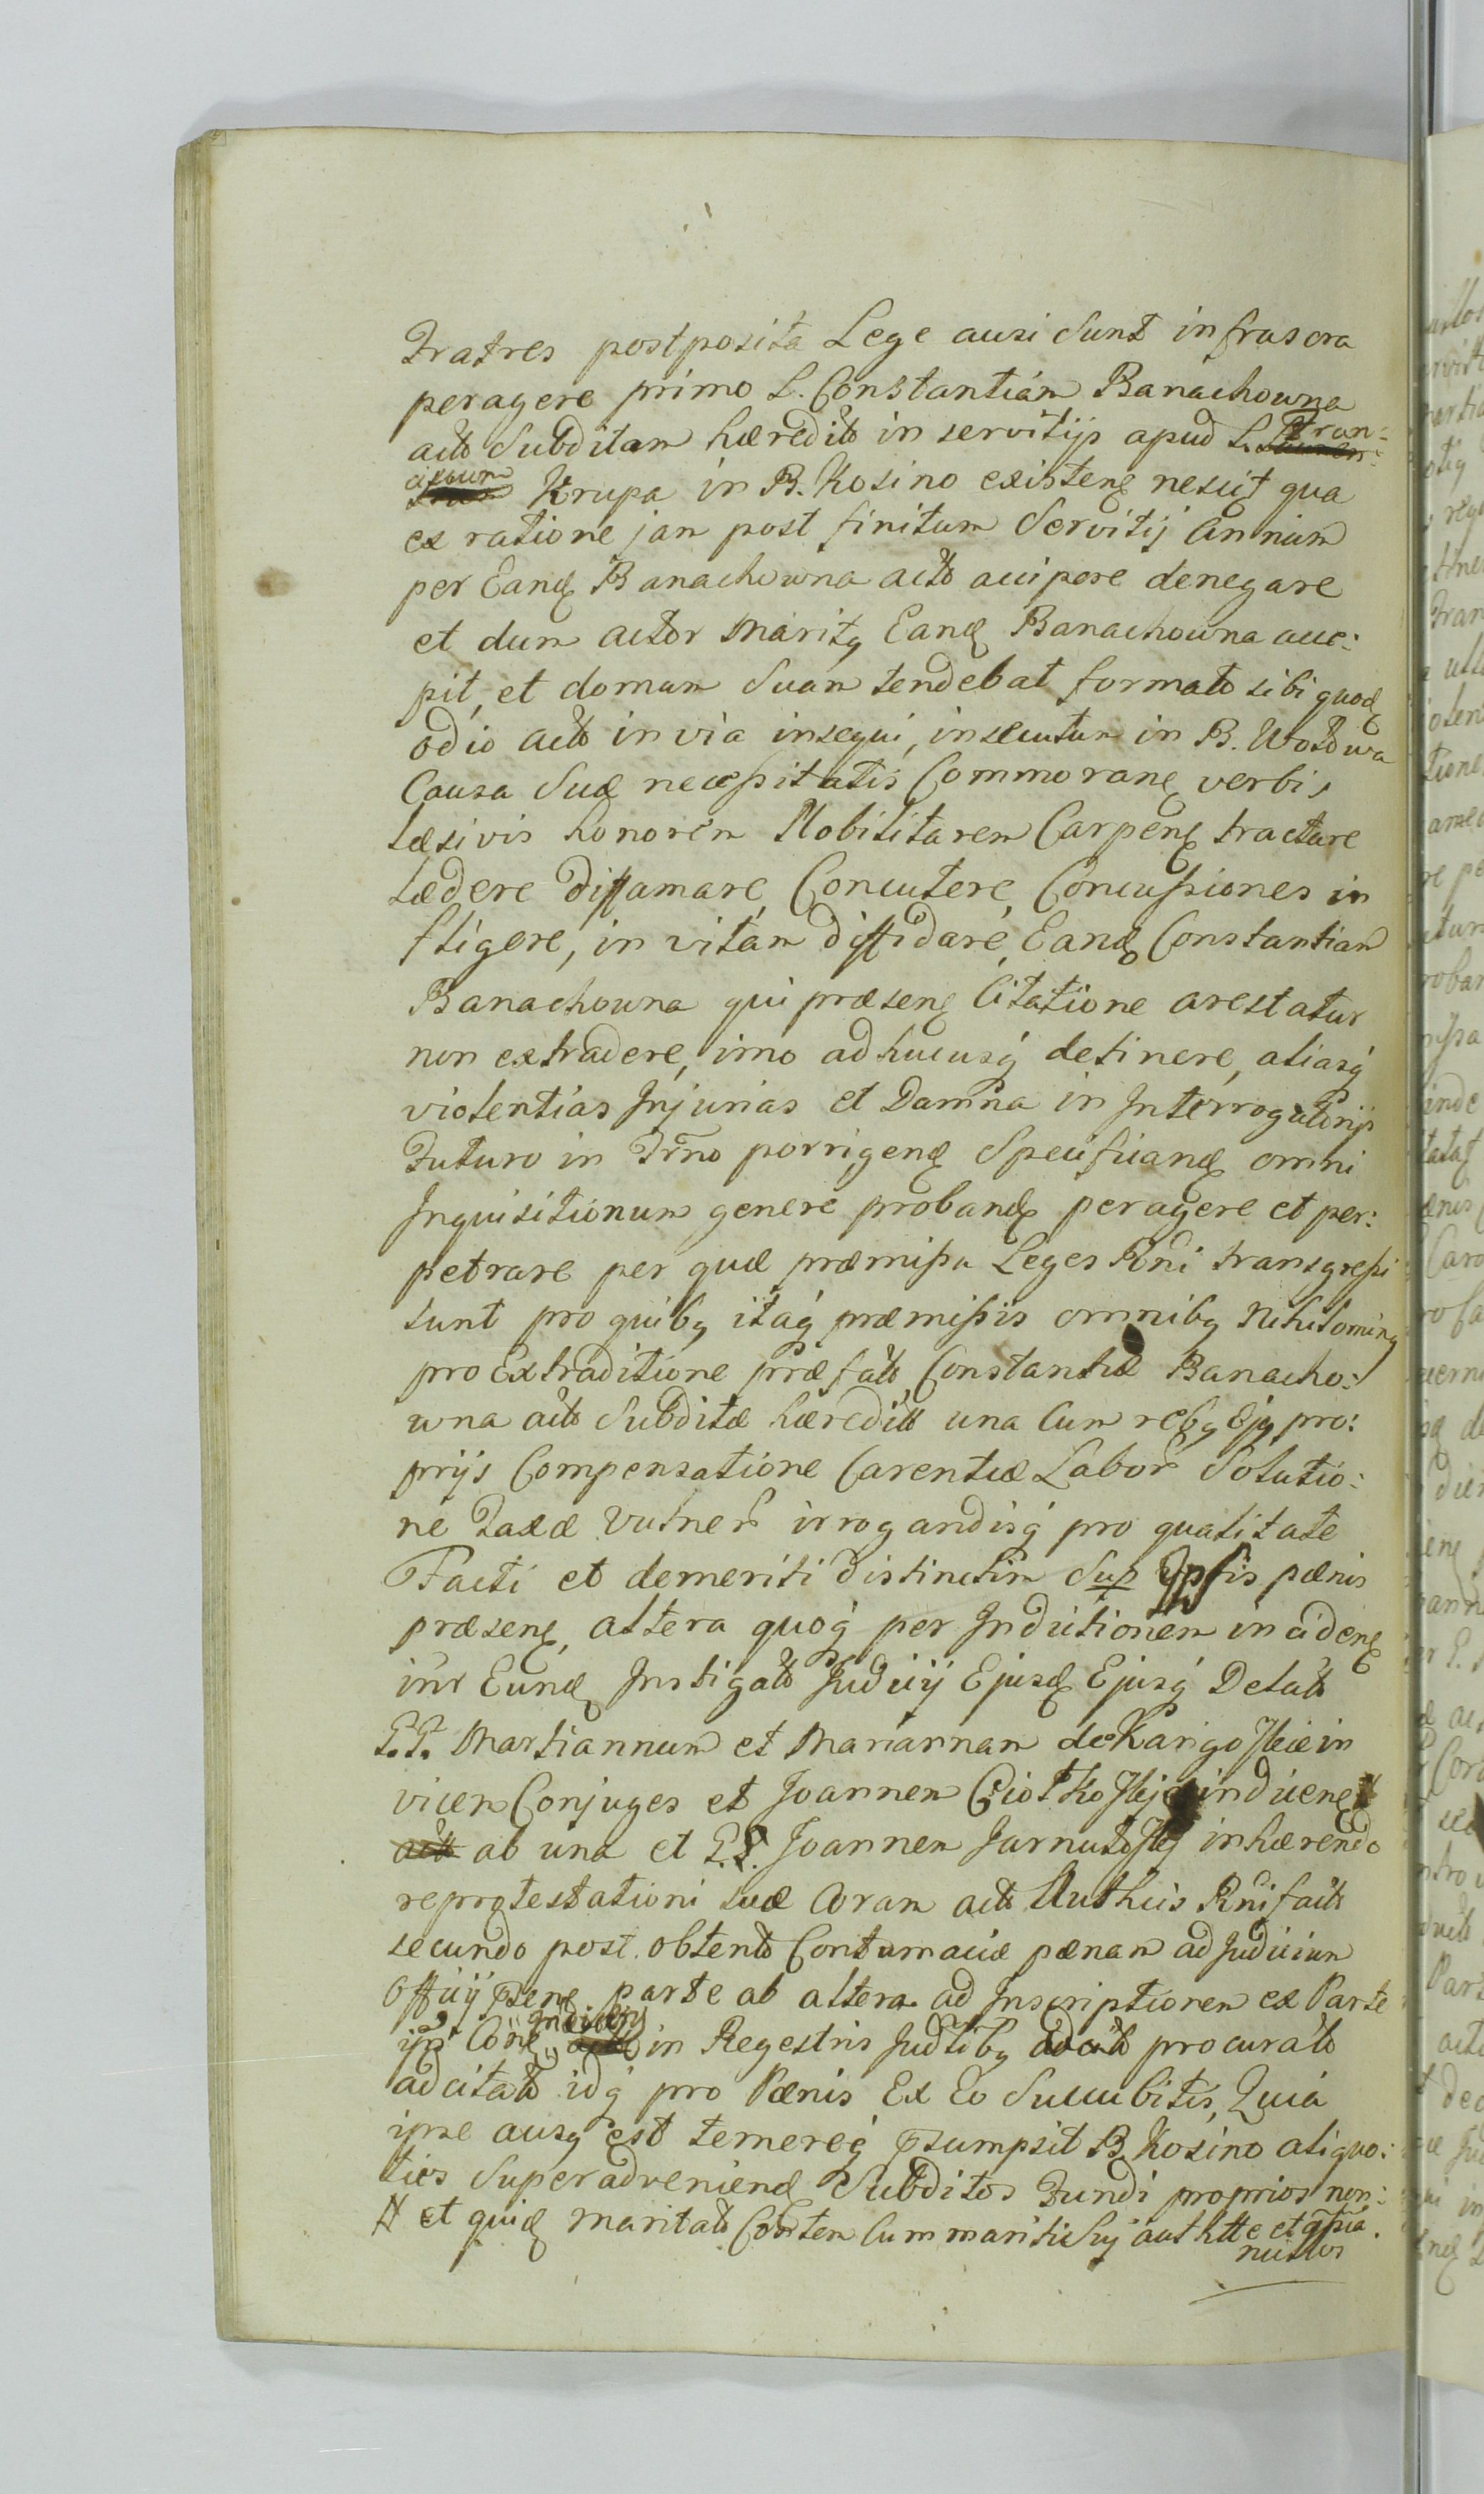 Fratres postposita Lege ausi sunt infrascra
peragere primo L. Constantiam Banachowna
acto Subditam hæredito in servitijs apud L. Fran:
ciscum Krupa in B. Kosino existenę nescit qua
ex ratione jam post finitum Servitij Annum
per Eandę Banachowna acto accipere denegare
et dum actor Maritq Eandę Banachowna acce:
pit, et domum Suam tendebat formato sibi quodę
odio acto in via insequi, insecutum in B. Wołdwa
Causa Suæ necessitatis Commoranę verbis
læsivis honorem Nobilitarem Carpenę tractare
Lædere diffamare, Concutere, Concussiones in
fligere, in vitam diffidare, Eandę Constantiam
Banachowna qui præsenę Citatione arestatur
non extradere, imo adhucusq detinere, aliasq
violentias Injurias et Damna in Interrogatorijs
Futuro in Trno porrigendę Specificandę omni
Inquisitionum genere probandę peragere et per:
petrare per quæ præmissa Leges Rni transgressi
sunt pro quibq itaq præmissis omnibq Nihilominq
pro Extraditione præfato Constantiæ Banacho:
wna acto Subditæ hæredito una cum rebq Ejq pro:
prijs Compensatione Carentiæ Labor Solutio:
ne Taxæ Vulner irrogandisq pro qualitate
Facti et demeriti distinctim Sup Ipsis pænis
præsenę, altera quoq per Inductionem incidenę
inr Eundę Instigato Judicij Ejusdę Ejusq Delato
P.P. Martiannum et Mariannam de Karigo in
vicem Conjuges et Joannem inducenę
ab una et P.P. Joannem inhærendo
reprotestationi suæ Coram acto Authcis Rni facto
secundo post obtento Contumaciæ pænam ad Judicium
Officij parte ab altera ad Inscriptionem ex Parte
in Regestris Judlibq procurato
adcitato idq pro Pænis Ex Eo Succubitis, Quia
ipse ausq est temereq psumpsit B. Kosino aliquo:
ties Superadveniendę Subditos Fundi proprios non:
# et quidę maritato Consten cum mariti Sui authtte et
nullos